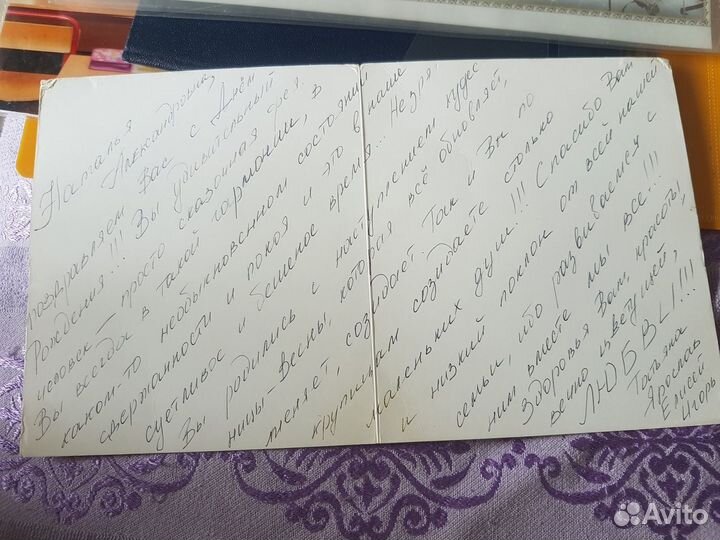 Наталья
Александровна,
поздравляем Вас с Днём
Рождения!!! Вы удивительный
человек – просто сказочная фея.
Вы всегда в такой гармонии, в
каком-то необыкновенном состоянии
сдержанности и покоя и это в наше
суетливое и бешеное время... Не зря
Вы родились с наступлением чудес
ницы-Весны, которая всё обновляет,
меняет, созидает. Так и Вы по
крупицам созидаете столько
маленьких душ!!! Спасибо Вам
и низкий поклон от всей нашей
семьи, ибо развиваемся с
ним вместе мы все!!!
Здоровья Вам, красоты,
вечно цветущей,
ЛЮБВИ!!!
Татьяна
Ярослав
Елисей
Игорь
Avito